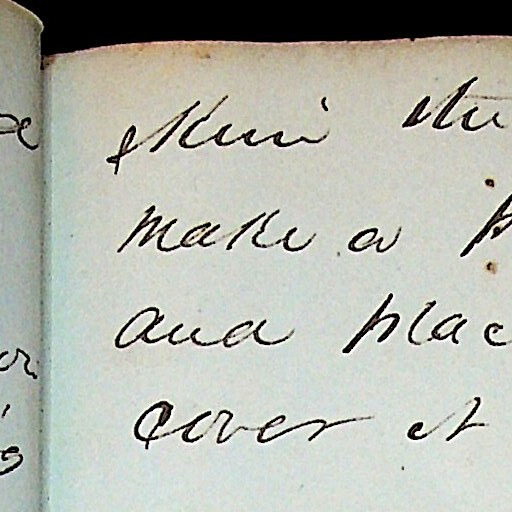 skin the
make a
and plac
cover it